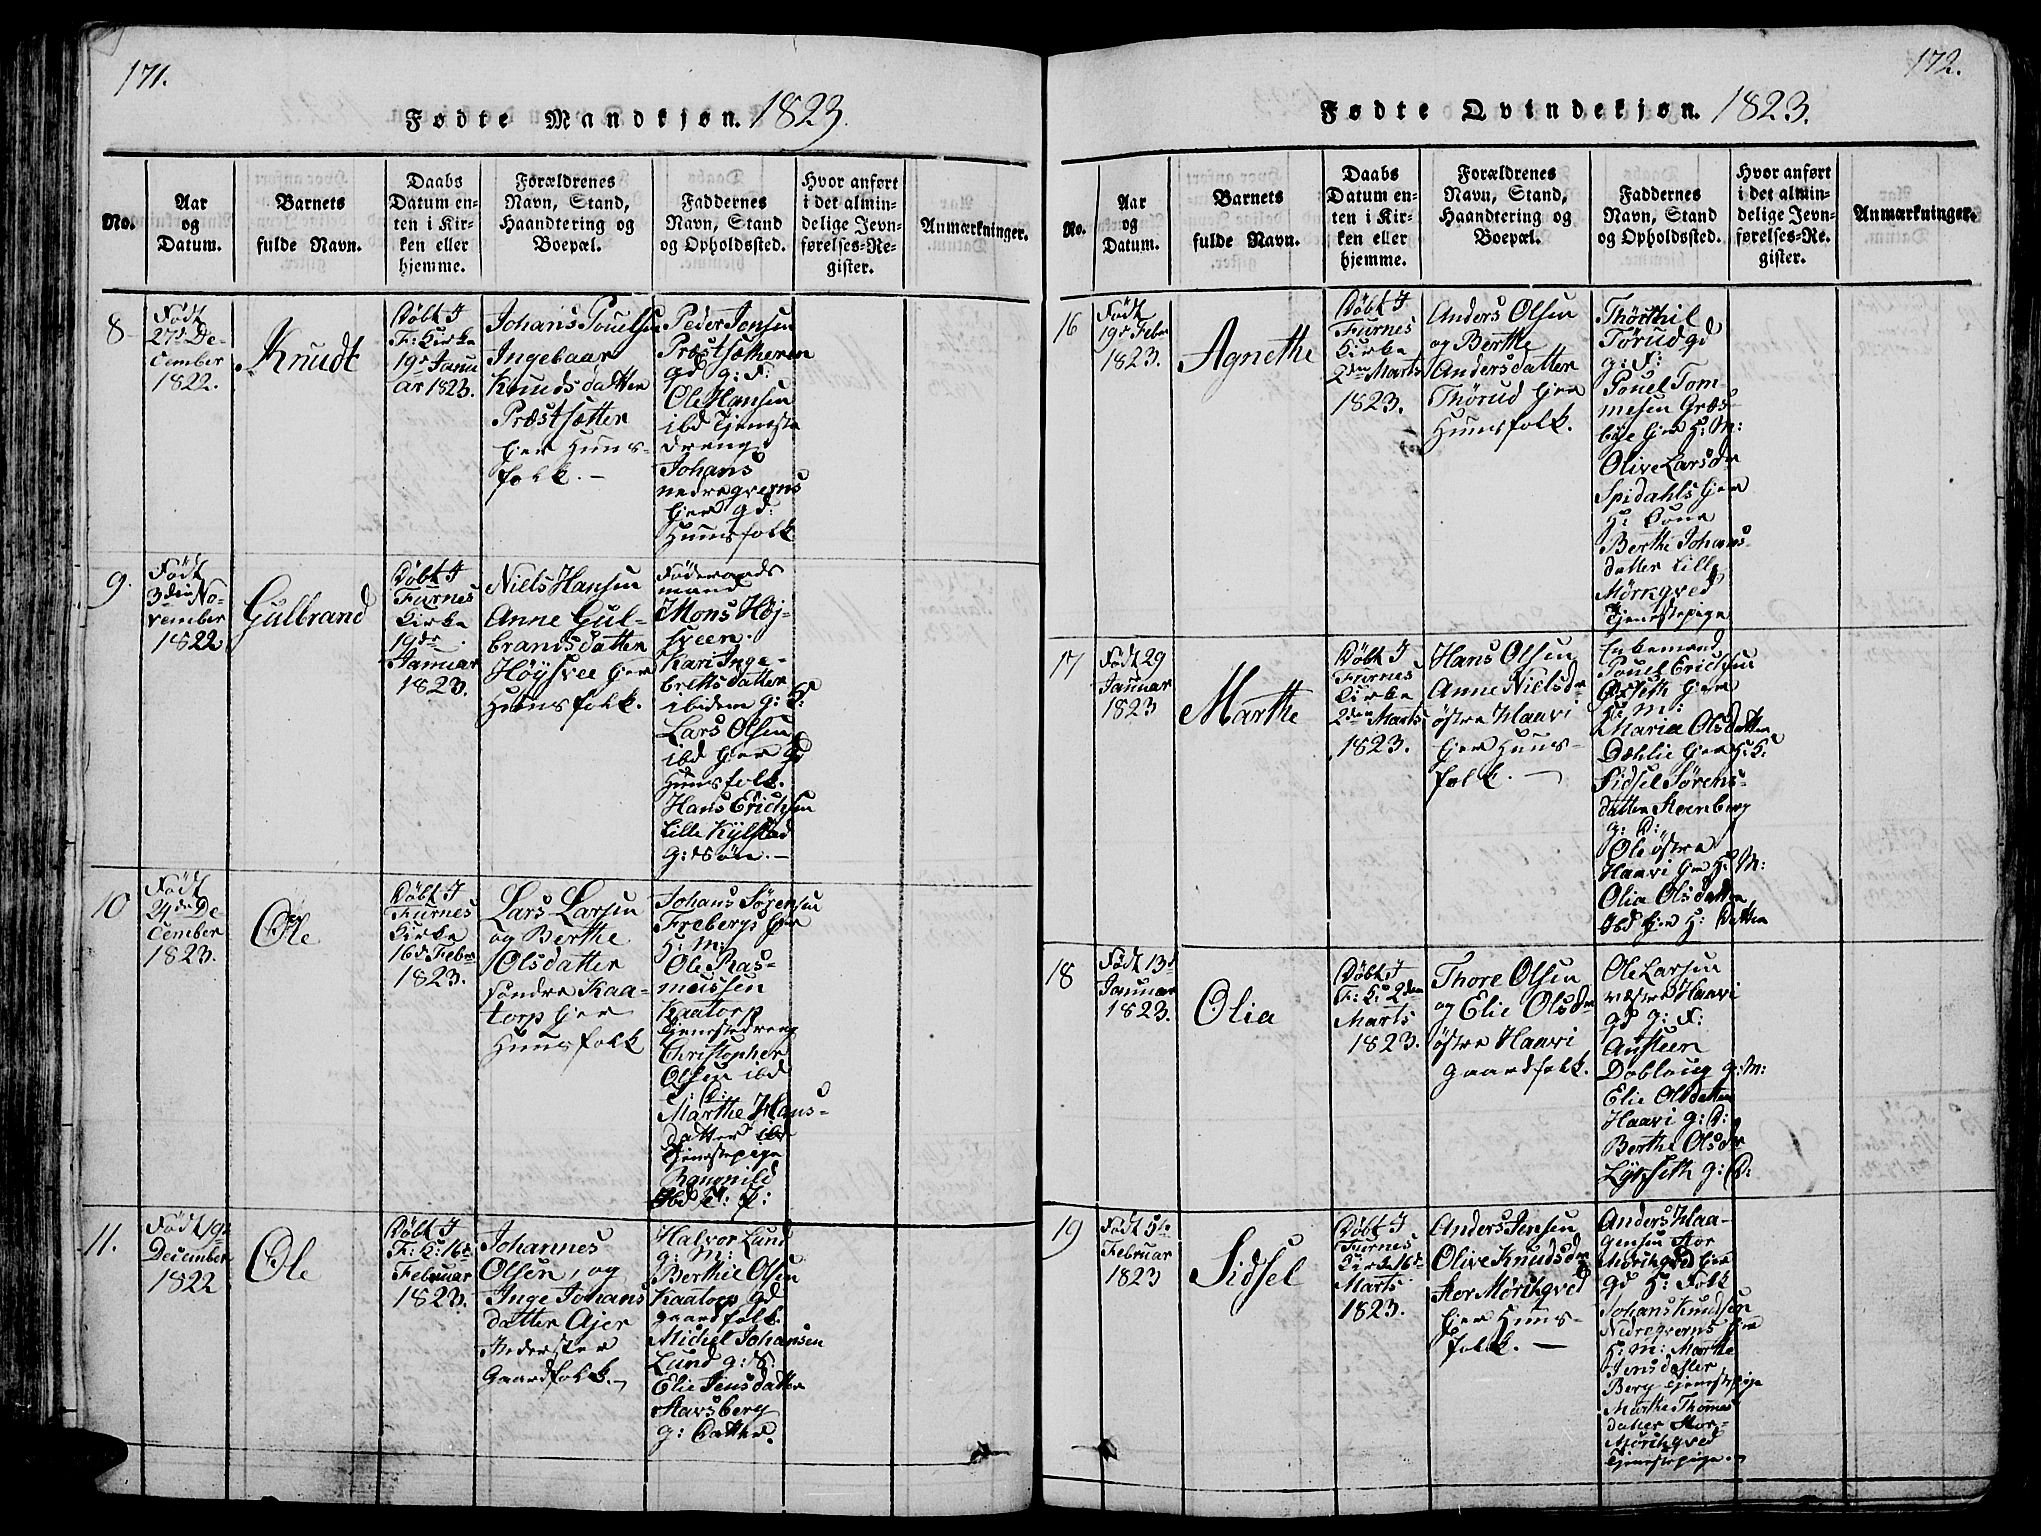 171.
Fødte Mandkjøn. 1823.
No.
Aar
og
Datum.
Barnets
fulde Navn.
Daabs
Datum en-
ten i Kir-
ken eller
hjemme.
Forældrenes
Navn, Stand,
Haandtering og
Boepæl.
Faddernes
Navn, Stand
og Opholdssted.
Hvor anført
i det almin-
delige Jevn-
førelses-Re-
gister.
Anmærkninger.
8
Født
27d De-
cember
1822.
Knudt
Døbt I
F: Kirke
19d Janu
ar 1823.
Johans Pouelsen
Ingebaar
Knudsdatter
Præstsætter
Huus-
folk. -
Peder Jensen
Præstsætheren
gd g: F:
Ole Hansen
ibd Tjeneste
dreng
Johans
nedre qverns
gd:
Huusfolk
9.
Født
3den No-
vember
1822.
Gulbrand
Døbt I
Furnes
Kirke
19de
Januar
1823.
Niels Hansen
Anne Gul-
brandsdatter
Höysvee
Huusfolk.
Føderaads
mand
Mons Höj-
sveen.
Kari Inge-
brettsdatter
ibidem g: K:
Lars Olsen
ibd
Huusfolk.
Hans Erichsen
Lille Kylstad
g: Søn. -
10
Født
24de De
cember
1823.
Ole
Døbt I
Furnes
Kirke
16d Febr
1823.
Lars Larsen
og Berthe
Olsdatter
søndre Kaa-
torp
Huusfolk
Johans Sørensen
Freberg
H: M:
Ole Ras-
mussen
Kaatorp
Tjenestedreng
Christopher
Olsen ibd
D:
Marthe Hans-
datter ibd
Tjenestepige
Rangnild
ibd
11.
Født 19de
December
1822
Ole
Døbt I
F: K: 16de
Februar
1823.
Johannes
Olsen, og
Inge Johans
datter Ajer
Gaardfolk. -
Halvor Lund
g: M:
Berthe Olsen
Kaatorp gd
gaardfolk.
Michel Johansen
Lund g: S:
Elie Jensdatter
Stavsberg
g: Datter.
172.
Fødte Qvindekjøn. 1823.
No.
Aar
og
Datum.
Barnets
fulde Navn.
Daabs
Datum en-
ten i Kir-
ken eller
hjemme.
Forældrenes
Navn, Stand,
Haandtering og
Boepæl.
Faddernes
Navn, Stand
og Opholdssted.
Hvor anført
i det almin-
delige Jevn-
førelses-Re-
gister.
Anmærkninger.
16
Født
19d Febr
1823.
Agnethe
Døbt I
Furnes
Kirke
2den Marts
1823.
Anders Olsen
og Berthe
Andersdatter
Thörud
Huusfolk.
Törud gd
g: F:
Pouel Tom-
mesen Græs-
H: M:
Olive Larsdr
Spidahls
H: Kone
Berthe Johans-
datter Lille
Mörkqved
Tjenestepige
17
Født 29
Januar
1823
Marthe
Døbt I
Furnes
Kirke
2den Marts
1823.
Hans Olsen
Anne Nielsdr
østre Haavi
Huus-
folk. -
Enkemand
Pouel Erichsen
H: M:
Maria Olsdatter
Dæhlie
Sidsel Sørens-
datter Stenberg
g: D:
Ole østre
Haavi H: M:
Olia Olsdatter
ibd H: Datter
18
Født 13d
Januar
1823.
Olia
Døbt I
F: K: 2den
Marts
1823.
Thore Olsen
og Elie Olsdr
østre Haavi
gaardfolk.
Ole Larsen
vestre Haavi
gd g: F:
Austeen
Doblaug g: M:
Elie Olsdatter
Haavi g: D:
Berthe Olsdr
g: D:
19
Født 5te
Februar
1823
Sidsel
Døbt I
Furnes
Kirke 16de
Marts
1823.
Anders Jensen
Olive Knudsdr
Stor Mörkqved
Huus-
folk. -
Anders Haa-
gensen Stor
Mörkqved
gd H: Folk
Johans Knudsen
Nedreqverns
H: M: Marthe
Jensdatter
Berg Tjenestepige
Marthe Thomes
datter Stor-
Mörkqved
Tjenestepige.